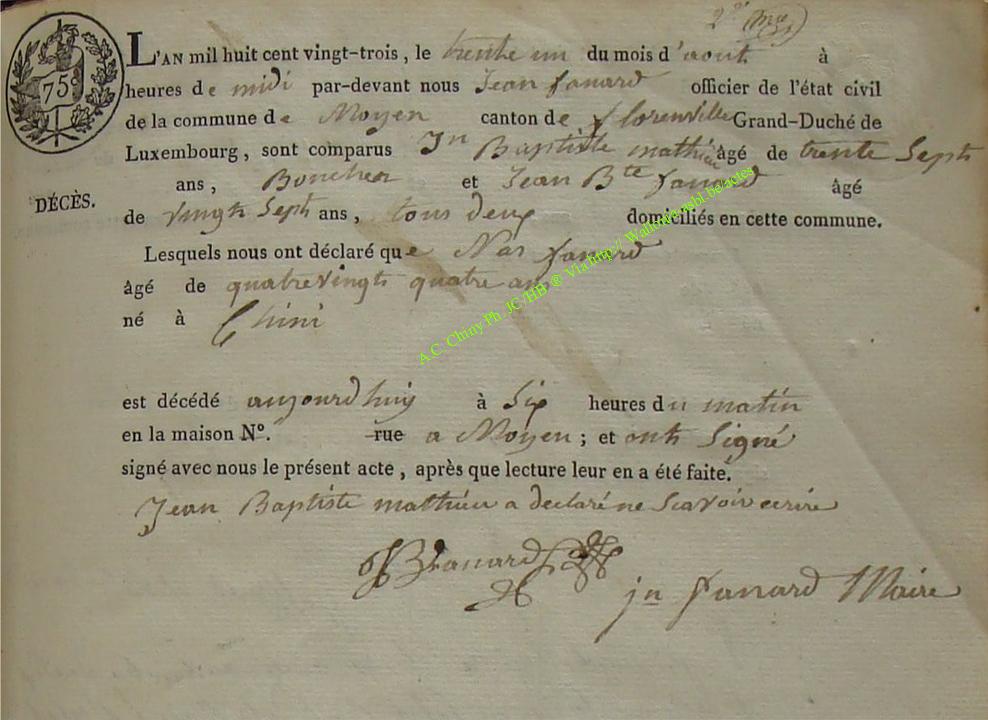 75c
L'AN mil huit cent vingt-trois, le trente un du mois d'aout à
heures de midi par-devant nous Jean fanard officier de l'état civil
de la commune de Moyen canton de florenville Grand-Duché de
Luxembourg, sont comparus Jn Baptiste mathieu âgé de trente Sept
ans, et Jean Bte fanard âgé
DÉCÈS.
de vingt Sept ans, tous deux domiciliés en cette commune.
Lesquels nous ont déclaré que fanard
âgé de quatrevingt quatre ans
né à Chini
est décédé aujourd huiy à Six heures du matin
en la maison No. rue a Moyen; et ont Signé
signé avec nous le présent acte, après que lecture leur en a été faite.
Jean Baptiste mathieu a declaré ne Scavoir ecrire
JBfanard
jn fanard Maire
A.C. Chiny Ph. JC/HB @ Via http:// Wallonie.asbl.be/actes